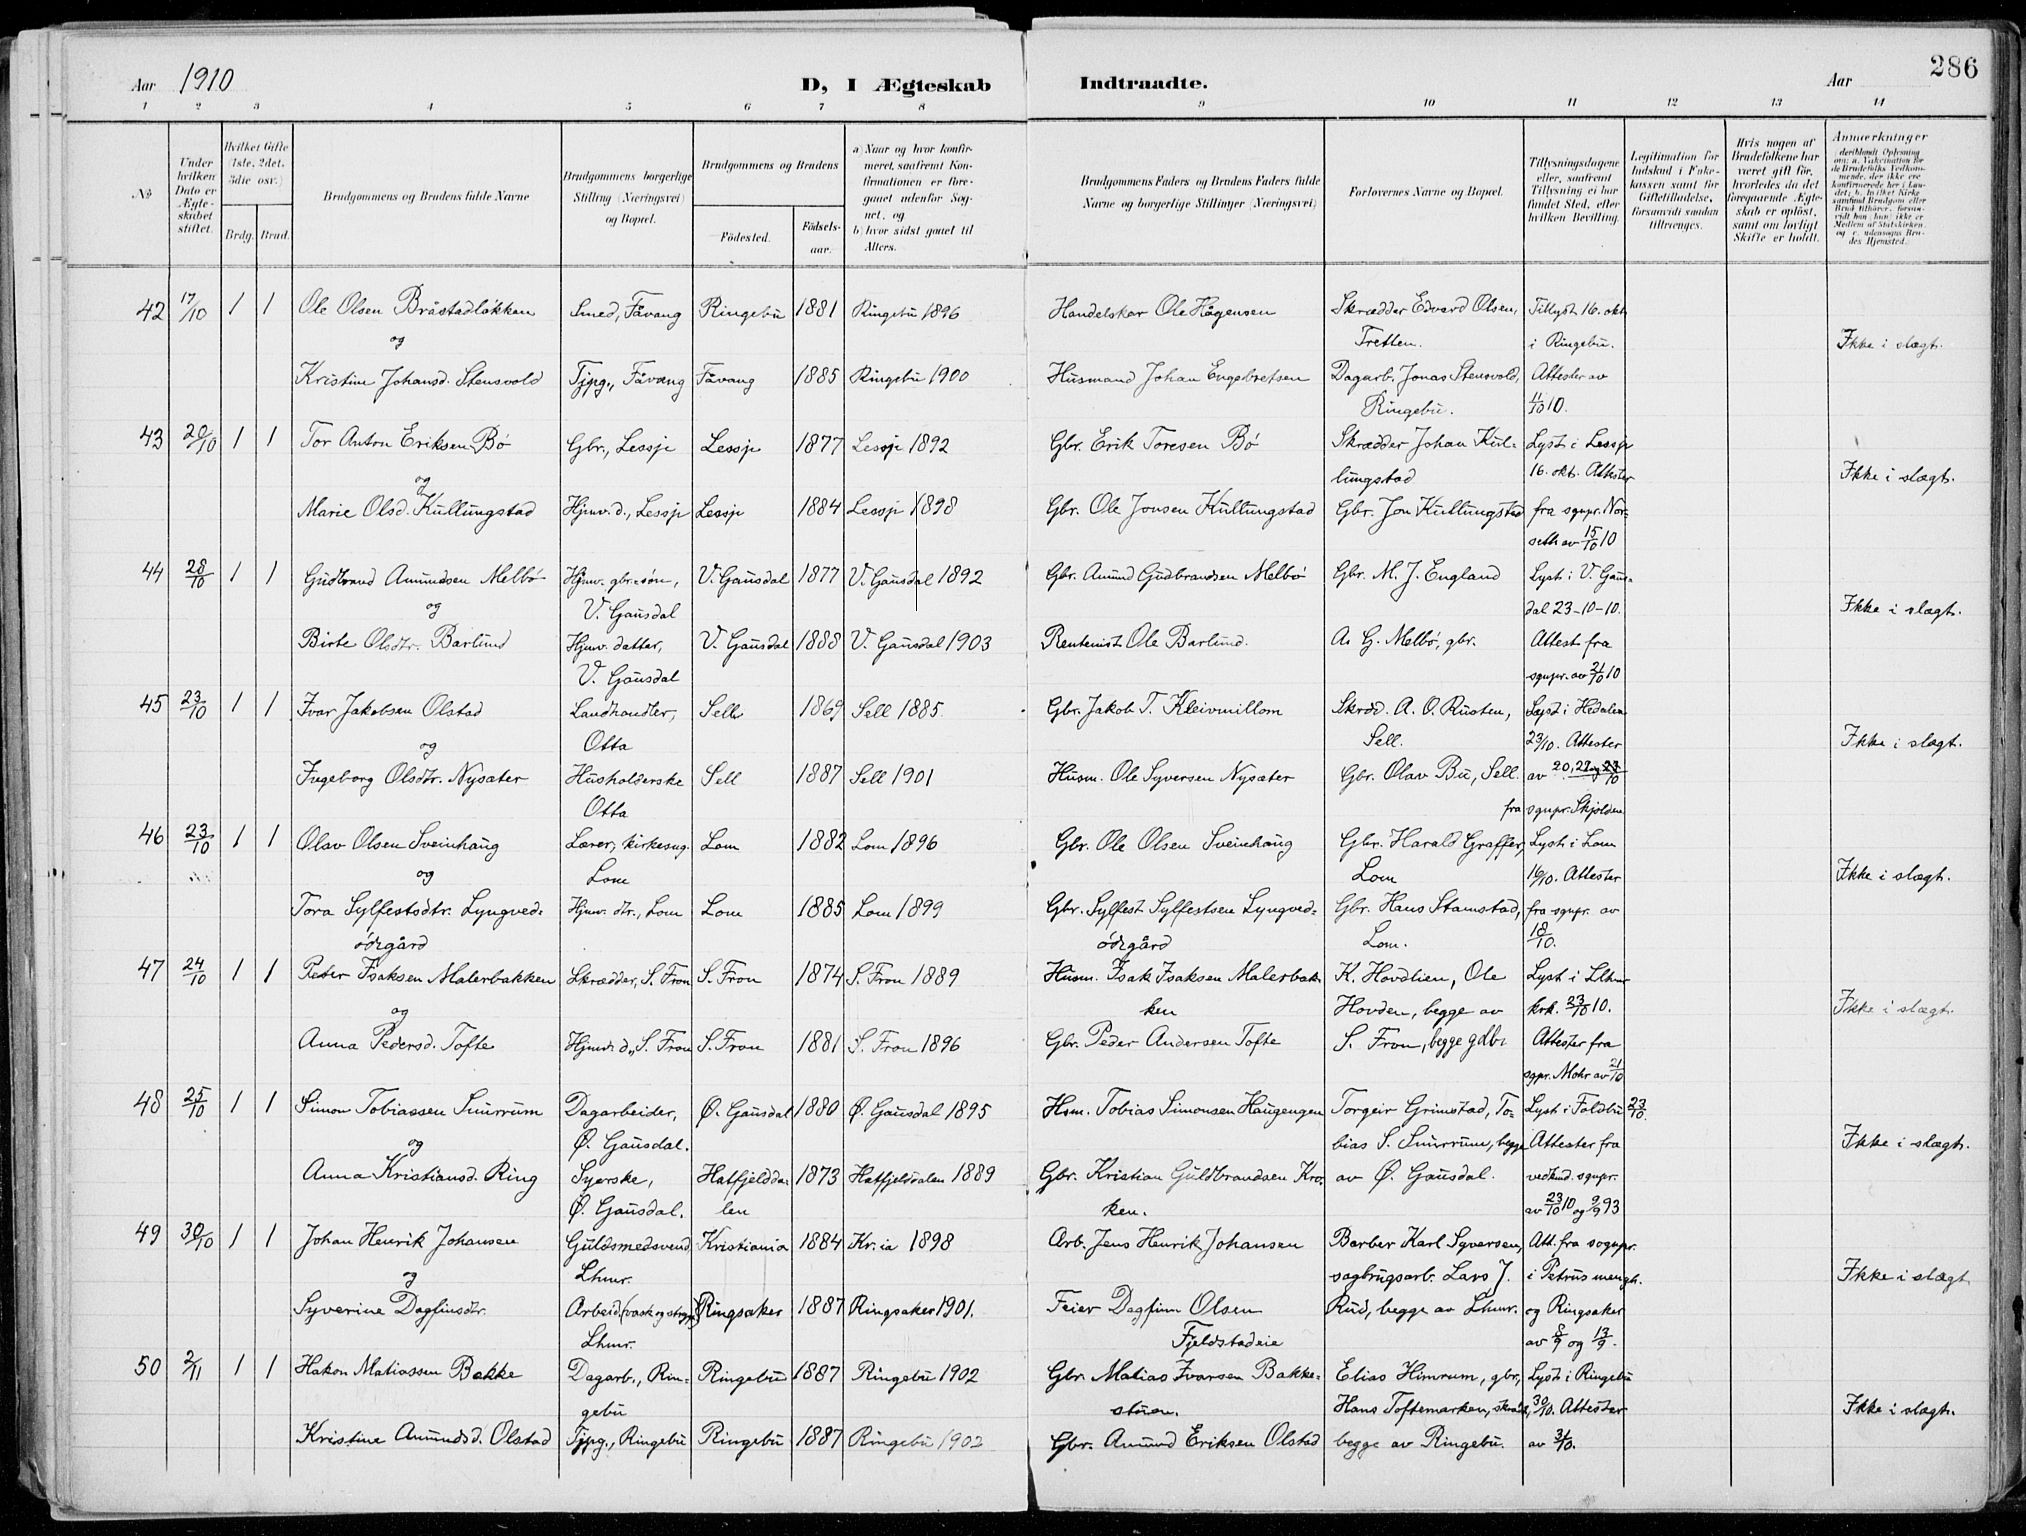 Aar 1910 D, I Ægteskab Indtraadte. Aar 286
1 2 3 4 5 6 7 8 9 10 11 12 13 14
No.
Under hvilken Dato er Ægteskabet stiftet.
Hvilket Gifte (1ste, 2det, 3die osv.)
Brdg. Brud.
Brudgommens og Brudens fulde Navne
Brudgommens borgerlige Stilling (Næringsvei) og Bopæl.
Brudgommens og Brudens
Födested. Födsels-aar.
a) Naar og hvor konfirmeret, saafremt Konfirmationen er foregaaet udenfor Sognet, og
b) hvor sidst gaaet til Alters.
Brudgommens Faders og Brudens Faders fulde Navne og borgerlige Stillinger (Næringsvei)
Forlovernes Navne og Bopæl.
Tillysningsdagene eller, saafremt Tillysning ei har fundet Sted, efter hvilken Bevilling.
Legitimation for Indskud i Enkekassen samt for Giftetilladelse, forsaavidt saadan tiltrænges.
Hvis nogen af Brudefolkene har været gift før, hvorledes da det foregaaende Ægteskab er oplöst, samt om lovligt Skifte er holdt.
Anmærkninger
42 17/10 1 1 Ole Olsen Bråstadløkken Smed, Fåvang Ringebu 1881 Ringebu 1896 Handelskar Ole Hågensen Skrædder Edvard Olsen, Tillyst 16. okt
og Tretten. i Ringebu. Ikke i slægt.
Kristine Johansd. Stensvold Tjpg., Fåvang Fåvang 1885 Ringebu 1900 Husmand Johan Engebretsen Dagarb. Jonas Stensvold, Attester av
Ringebu. 11/10 10.
43 20/10 1 1 Tor Anton Eriksen Bø Gbr., Lessje Lessje 1877 Lessje 1892 Gbr. Erik Toresen Bø Skrædder Johan Kul- Lyst i Lessje
og lungstad 16. okt. Attester Ikke i slægt.
Marie Olsd. Kullungstad Hjmv. d., Lessje Lessje 1884 Lessje 1898 Gbr. Ole Jonsen Kullungstad Gbr. Jon Kullungstad fra sgnpr. Nor-
seth av 15/10 10
44 28/10 1 1 Gudbrand Amundsen Melbø Hjmv. gbr.søn, V. Gausdal 1877 V. Gausdal 1892 Gbr. Amund Gudbrandsen Melbø Gbr. M. J. England Lyst i V. Gaus-
og V. Gausdal dal 23-10-10. Ikke i slægt.
Birte Olsdtr. Barlund Hjmv. datter, V. Gausdal 1888 V. Gausdal 1903 Rentenist Ole Barlund. A. G. Melbø, gbr. Attest fra
V. Gausdal sgnpr. av 21/10 10
45 23/10 1 1 Ivar Jakobsen Olstad Landhandler, Sell 1869 Sell 1885 Gbr. Jakob T. Kleivmillom Skræd. A. O. Rusten, Lyst i Hedalen
og Otta Sell. 23/10. Attester Ikke i slægt.
Ingeborg Olsdtr. Nysæter Husholderske Sell 1887 Sell 1901 Husm. Ole Syversen Nysæter Gbr. Olav Bu, Sell. av 20,
Otta fra sgnpr. Skjolden
46 23/10 1 1 Olav Olsen Sveinhaug Lærer, kirkesng. Lom 1882 Lom 1896 Gbr. Ole Olsen Sveinhaug Gbr. Harald Graffer, Lyst i Lom
og Lom Lom 16/10. Attester Ikke i slægt.
Tora Sylfestsdtr. Lyngved- Hjmv. dtr., Lom Lom 1885 Lom 1899 Gbr. Sylfest Sylfestsen Lyngved- Gbr. Hans Stamstad, fra sgnpr. av
ødegård ødegård Lom. 18/10.
47 24/10 1 1 Peter Isaksen Malerbakken Skrædder, S. Fron S. Fron 1874 S. Fron 1889 Husm. Isak Isaksen Malerbak- K. Hovdlien, Ole Lyst i Llhmr
og ken Hovden, begge av krk. 23/10 10. Ikke i slægt.
Anna Pedersd. Tofte Hjmv. d., S. Fron S. Fron 1881 S. Fron 1896 Gbr. Peder Andersen Tofte S. Fron, begge gdbr Attester fra
sgpr. Mohr av 21/10
48 25/10 1 1 Simon Tobiassen Smrrum Dagarbeider, Ø. Gausdal 1880 Ø. Gausdal 1895 Hsm. Tobias Simonsen Haugengen Torgeir Grimstad, To- Lyst i Foldbu 23/10.
og Ø. Gausdal. bias S. Smrrum, begge Attester fra Ikke i slægt.
Anna Kristiansd. Ring Syerske, Hatfjeldda- 1873 Hatfjelddalen 1889 Gbr. Kristian Guldbrandsen Kro- av Ø. Gausdal. vedkmd. sgnpr.
Ø. Gausdal. len ken. av 23/10 10 og 9/9 93
49 30/10 1 1 Johan Henrik Johansen Guldsmedsvend, Kristiania 1884 Kr.ia 1898 Arb. Jens Henrik Johansen Barber Karl Syversen, Att. fra sognpr.
og Lhmr. sagbrugsarb. Lars J. i Petrus mengh. Ikke i slægt
Syverine Dagfinsdtr. Arbeid. (vask og stryg) Ringsaker 1887 Ringsaker 1901. Feier Dagfinn Olsen Rud, begge av Lhmr. og Ringsaker
Lhmr. Fjeldstadeie av 8/9 og 13/9.
50 2/11 1 1 Hakon Matiassen Bakke Dagarb., Rin- Ringebu 1887 Ringebu 1902 Gbr. Matias Ivarsen Bakke- Elias Himrum, gbr, Lyst i Ringebu
gebu stuen. Hans Toftemarken, skræd., 30/10. Attester Ikke i slægt.
Kristine Amundsd. Olstad Tjpg., Ringebu Ringebu 1887 Ringebu 1902 Gbr. Amund Eriksen Olstad begge av Ringebu. av 31/10.